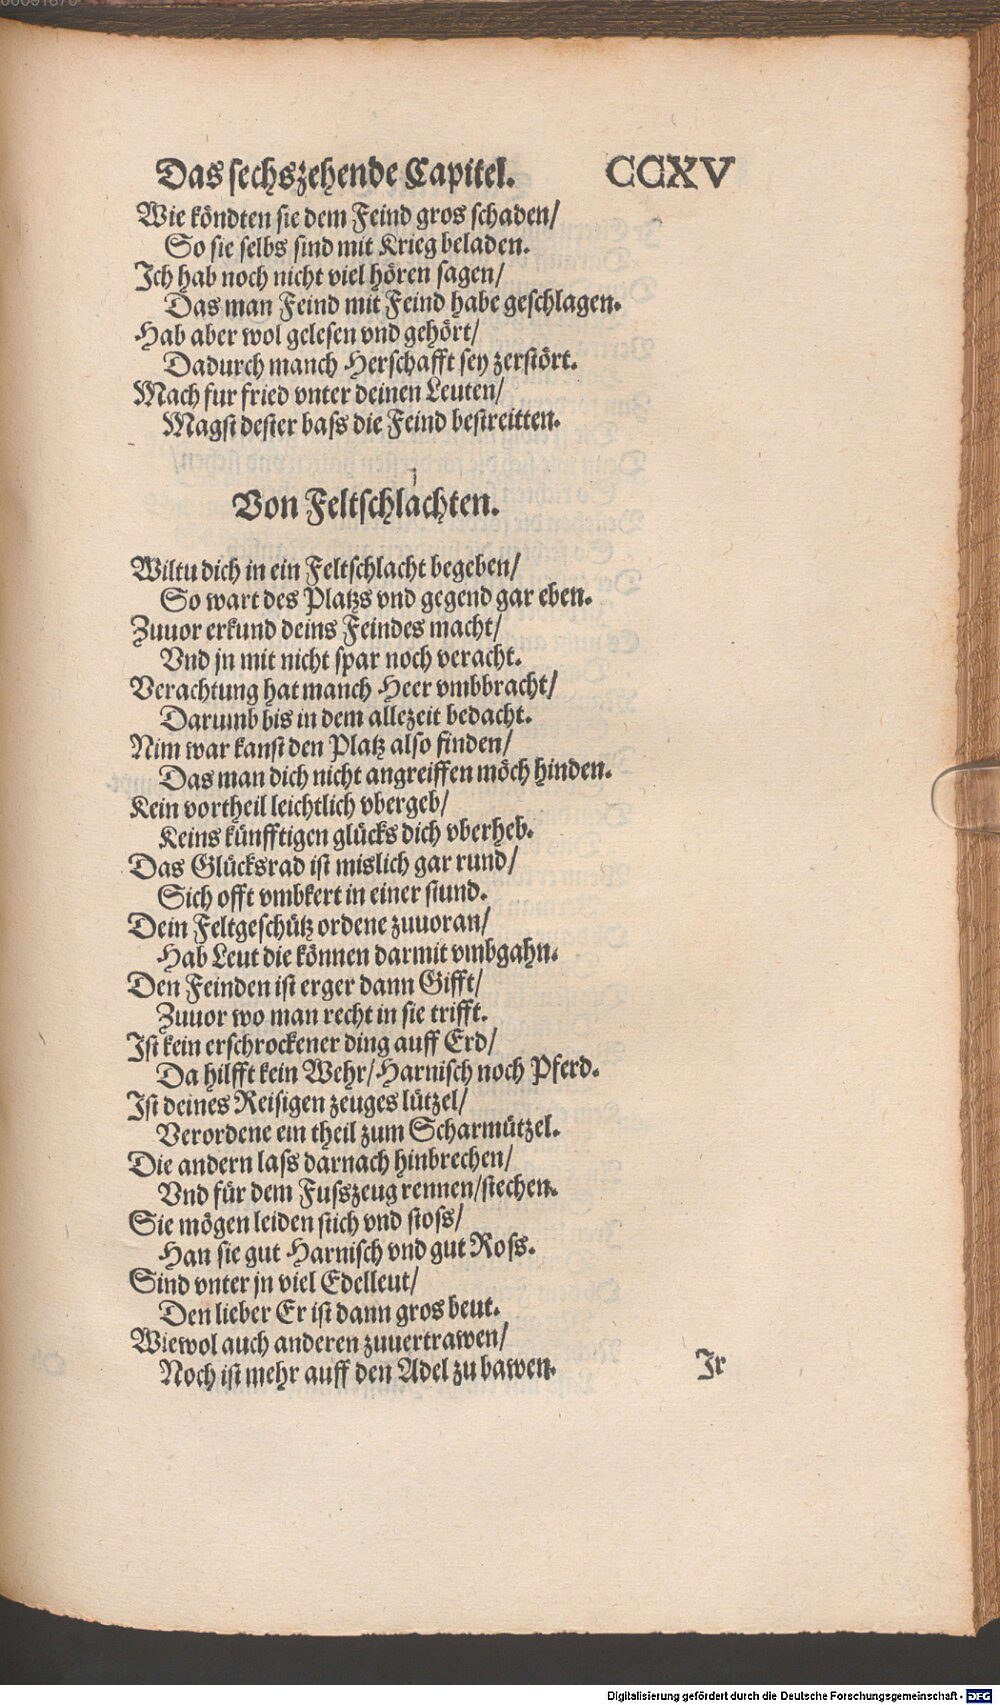 Das sechszehende Capitel. CCXV
Wie köndten sie dem Feind gros schaden/
So sie selbs sind mit Krieg beladen.
Ich hab noch nicht viel hören sagen/
Das man Feind mit Feind habe geschlagen.
Hab aber wol gelesen vnd gehört/
Dadurch manch Herschafft sey zerstört.
Mach fur fried vnter deinen Leuten/
Magst dester bass die Feind bestreitten.
Von Feltschlachten.
Wiltu dich in ein Feltschlacht begeben/
So wart des Platzs vnd gegend gar eben.
Zuuor erkund deins Feindes macht/
Vnd jn mit nicht spar noch veracht.
Verachtung hat manch Heer vmbbracht/
Darumb bis in dem allezeit bedacht.
Nim war kanst den Platz also finden/
Das man dich nicht angreiffen möch hinden.
Kein vortheil leichtlich vbergeb/
Keins künfftigen glücks dich vberheb.
Das Glücksrad ist mislich gar rund/
Sich offt vmbkert in einer stund.
Dein Feltgeschütz ordene zuuoran/
Hab Leut die können darmit vmbgahn.
Den Feinden ist erger dann Gifft/
Zuuor wo man recht in sie trifft.
Ist kein erschrockener ding auff Erd/
Da hilfft kein Wehr/Harnisch noch Pferd.
Ist deines Reisigen zeuges lützel/
Verordene ein theil zum Scharmützel.
Die andern lass darnach hinbrechen/
Vnd für dem Fusszeug rennen/stechen.
Sie mögen leiden stich vnd stoss/
Han sie gut Harnisch vnd gut Ross.
Sind vnter jn viel Edelleut/
Den lieber Er ist dann gros beut.
Wiewol auch anderen zuuertrawen/
Noch ist mehr auff den Adel zu bawen.
Jr
Digitalisierung gefördert durch die Deutsche Forschungsgemeinschaft - DFG